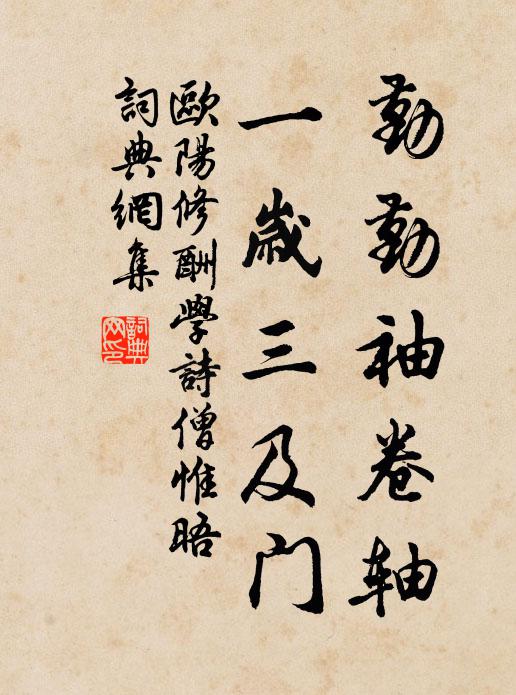 勤勤袖卷轴
一歲三及门
歐陽修酬學詩僧惟晤
詞典網集
詞典网印